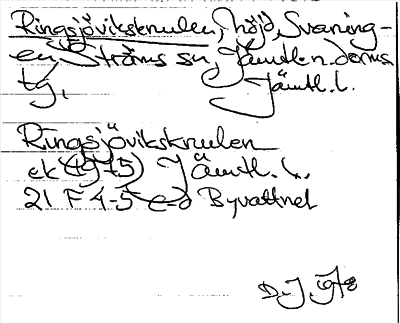 Ringsjövikskrulen, höjd, Svaning-
en, Ströms sn, Jämtl. n. doms
tg, Jämtl. l.
Ringsjövikskrulen
ek (1975) Jämtl. l.
21 F 4-5 c-d Byvattnet
D. J.